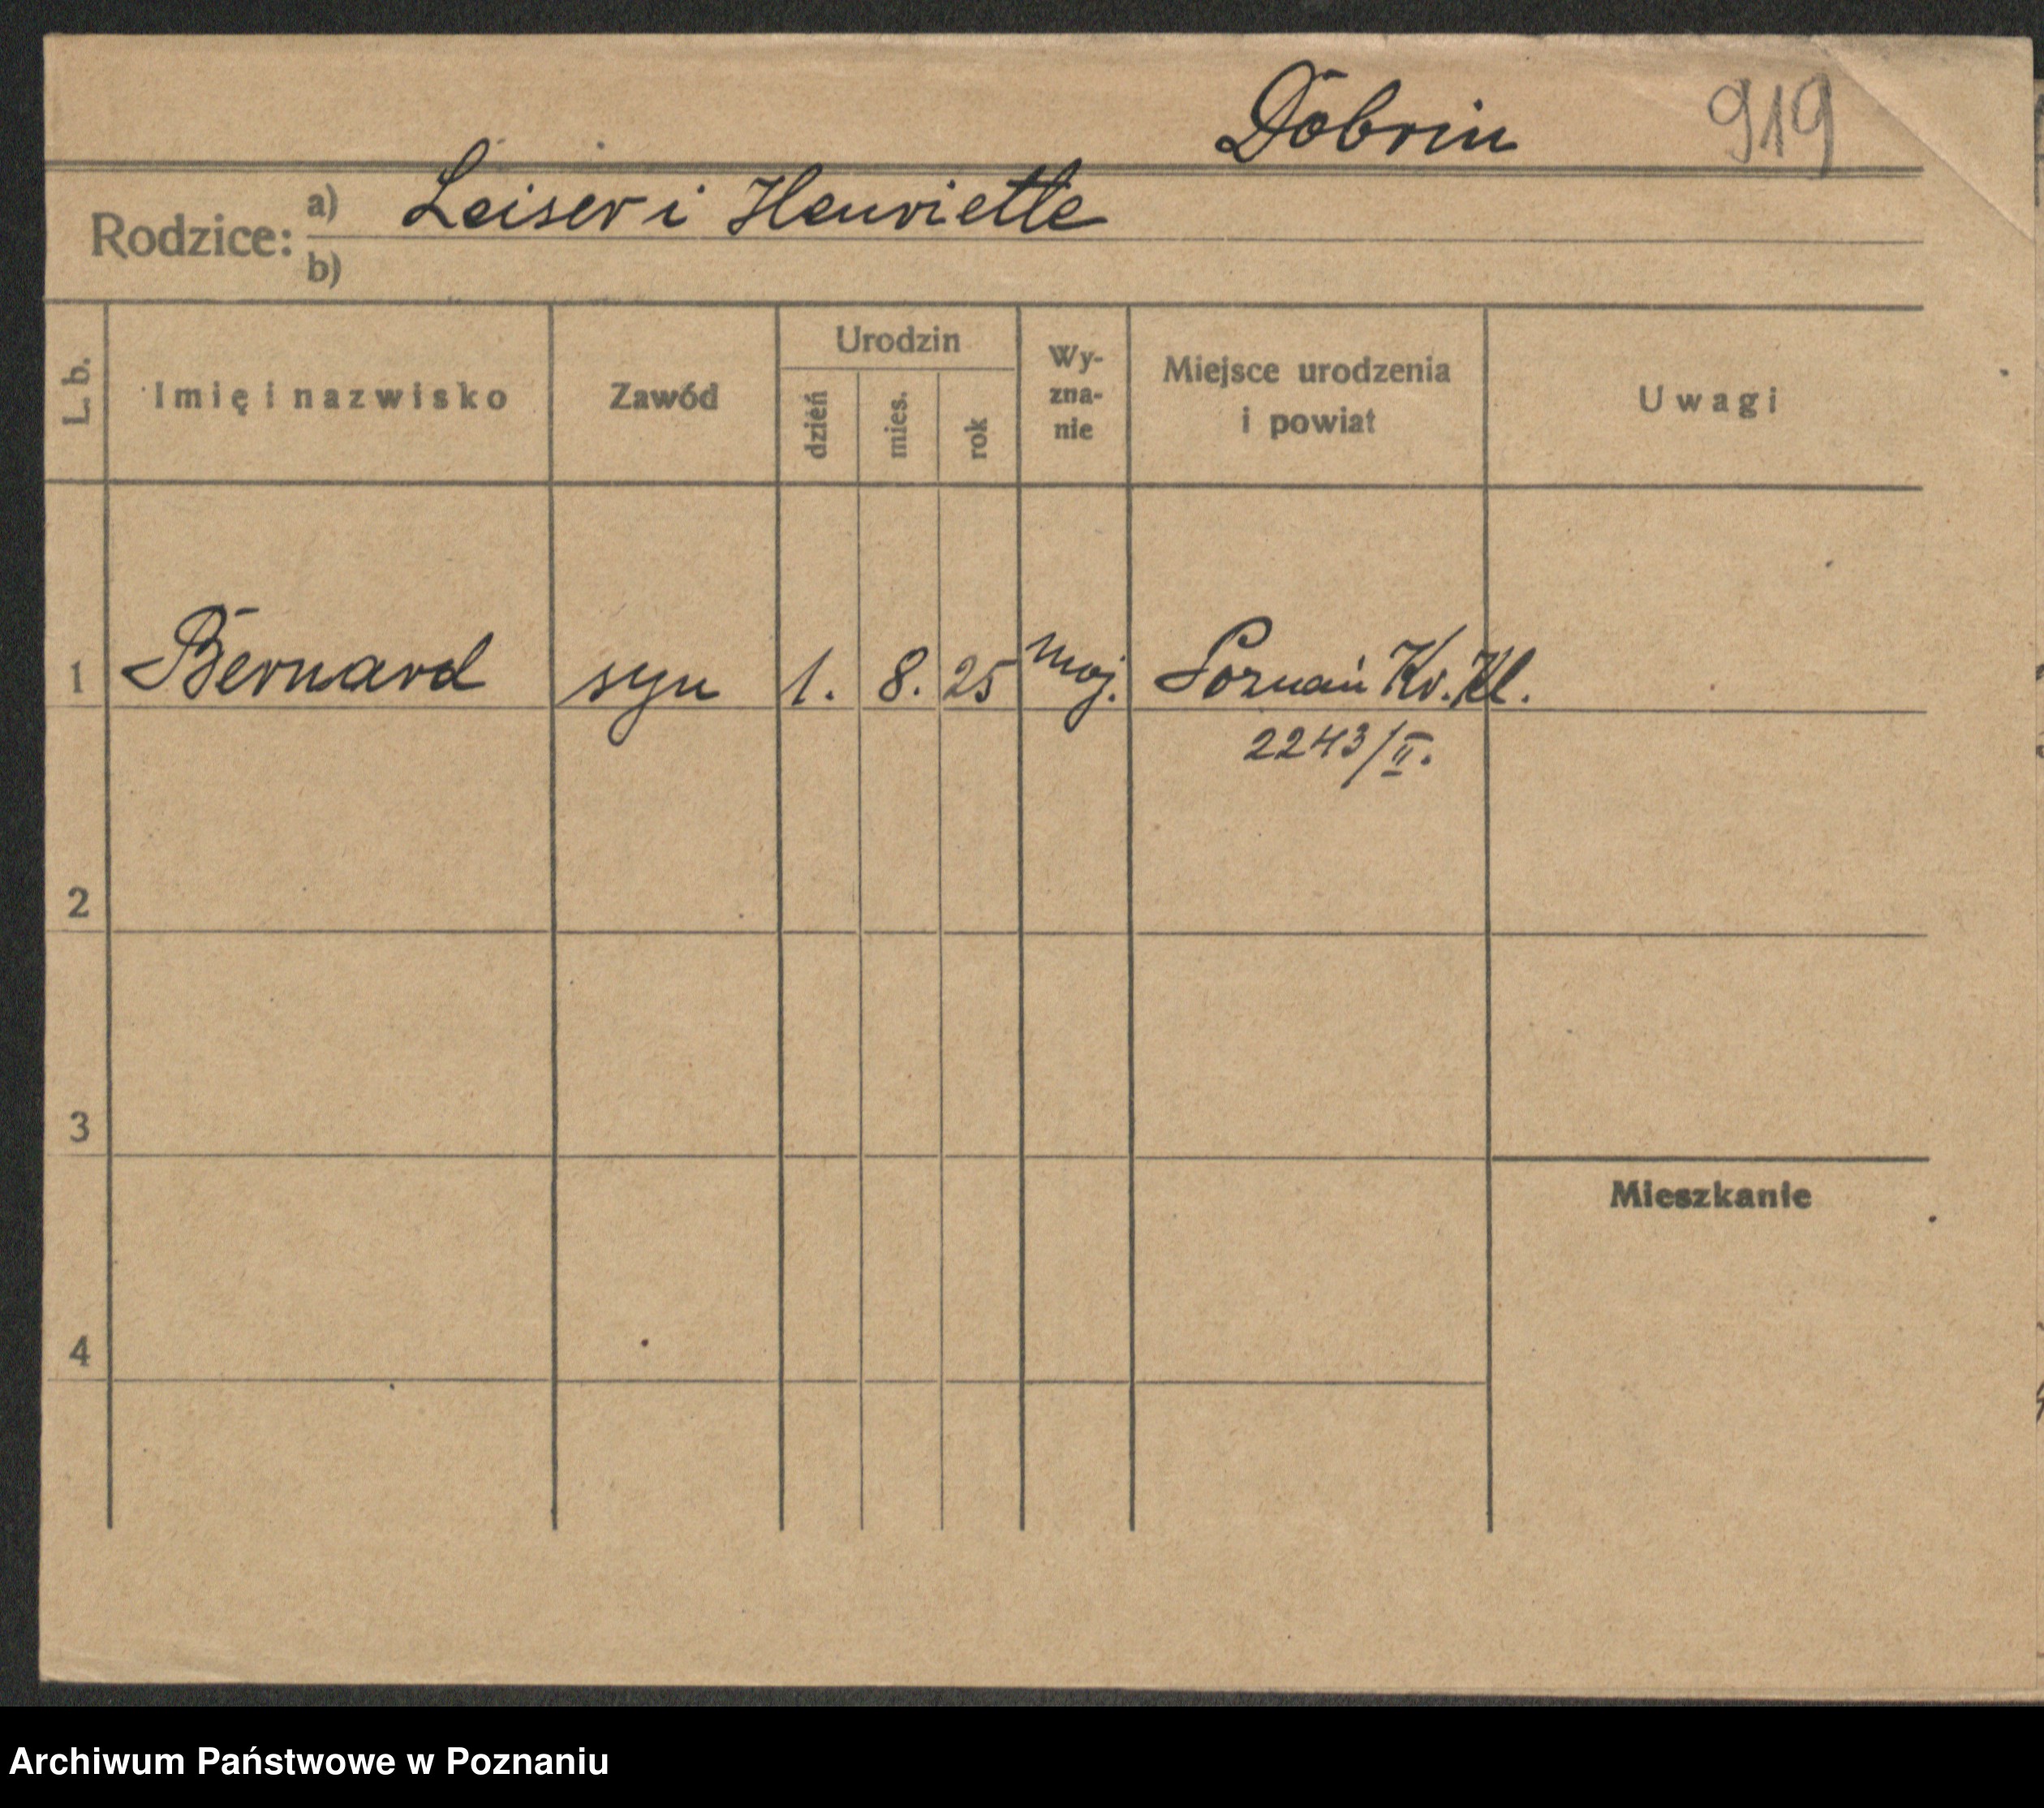 Döbrin 919
Rodzice: a) Leiser i Henriette
b)
L. b. Imię i nazwisko Zawód Urodzin dzień mies. rok Wy-zna-nie Miejsce urodzenia i powiat Uwagi
1 Bernard syn 1. 8. 25 moj. Poznań Kv. Kl.
2243/II.
2
3
Mieszkanie
4
Archiwum Państwowe w Poznaniu